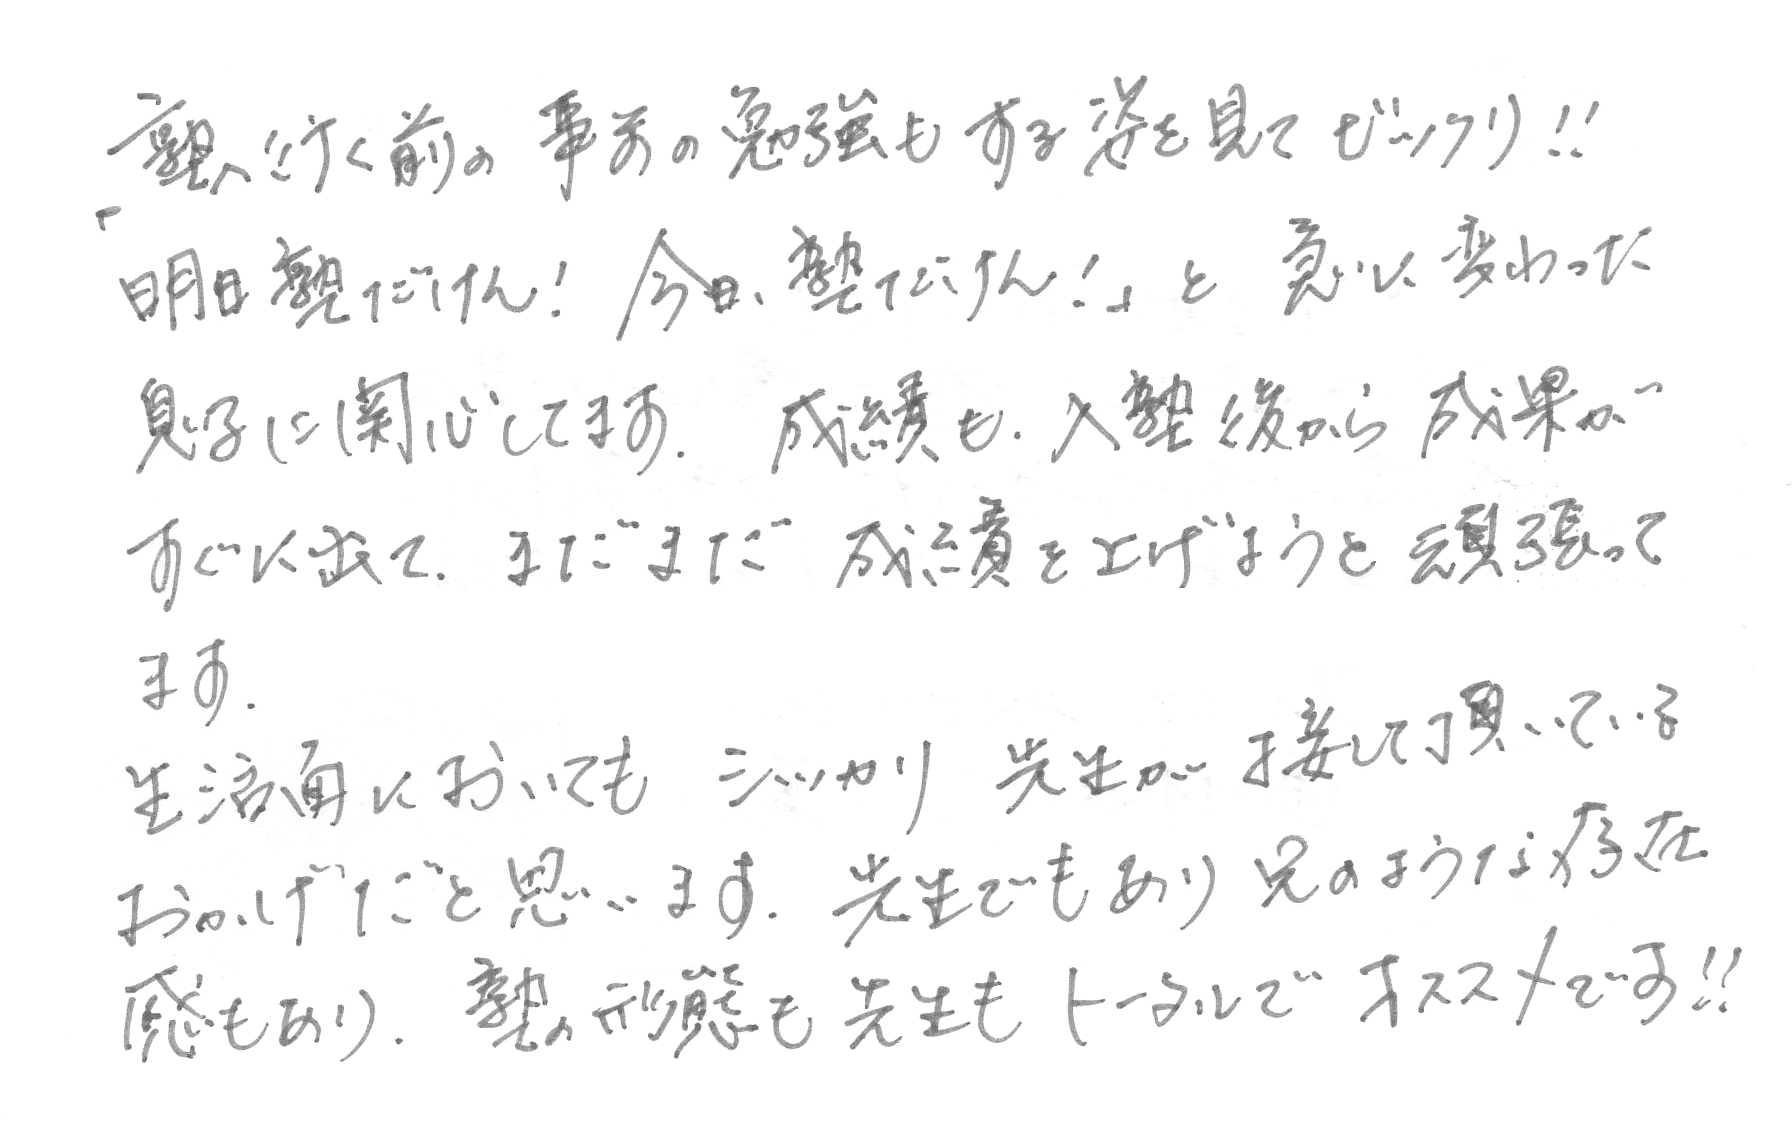 塾へ行く前の 事前の勉強も する姿を見て ビックリ!!
「明日塾だけん! 今日、塾だけん!」と 急に変わった
息子に関心してます. 成績も、入塾後から成果が
すぐに出て、まだまだ 成績を上げようと頑張って
ます.
生活面においても シッカリ 先生が 接して頂いている
おかげだと思います. 先生でもあり兄のような存在
感もあり、塾の形態も先生も トータルで オススメです!!